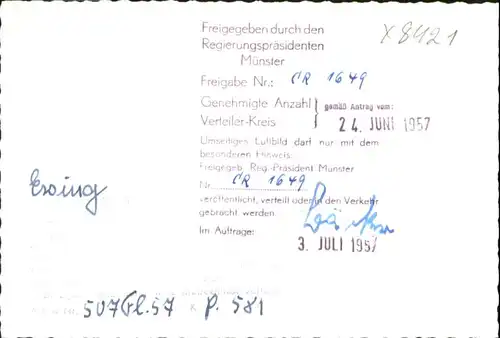 Freigegeben durch den
Regierungspräsidenten
Münster
X 8421
Freigabe Nr.: CR 1649
Genehmigte Anzahl } gemäß Antrag vom:
Verteiler-Kreis 24. JUNI 1957
Umseitiges Luftbild darf nur mit dem
besonderen Hinweis:
Freigegeb. Reg.-Präsident Münster
Nr. CR 1649
veröffentlicht, verteilt oder in den Verkehr
gebracht werden.
Im Auftrage:
3. JULI 1957
Ewing
507 Fl. 57 K P. 581